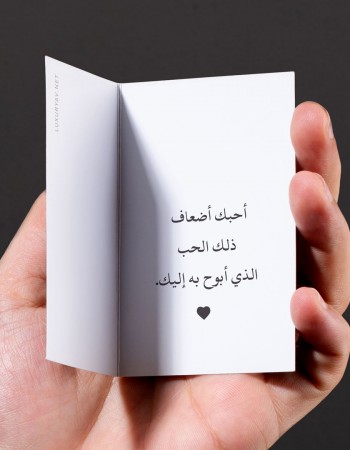 LUXURYBY.NET
أحبك أضعاف
ذلك الحب
الذي أبوح به إليك.